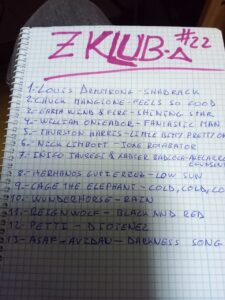 Z KLUB-A #22
1.-LOUIS ARMSTRONG-SHADRACK
2.-CHUCK MANGIONE-FEELS SO GOOD
3.-EARTH WIND & FIRE-SHINING STAR
4.-WILLIAM ONYEABOR-FANTASTIC MAN
5.-THURSTON HARRIS-LITTLE BITTY PRETTY ON
6.-NICK LIMBOTT-
7.-
8.-HERMANOS GUTIERREZ-LOW SUN
9.-CAGE THE ELEPHANT-COLD, COLD, COL
10.-WUNDERHORSE-RAIN
11.-REIGNWOLF-BLACK AND RED
12.-PETTI-DIOJENEZ
13.-ASAF-AVIDAN-DARKNESS SONG